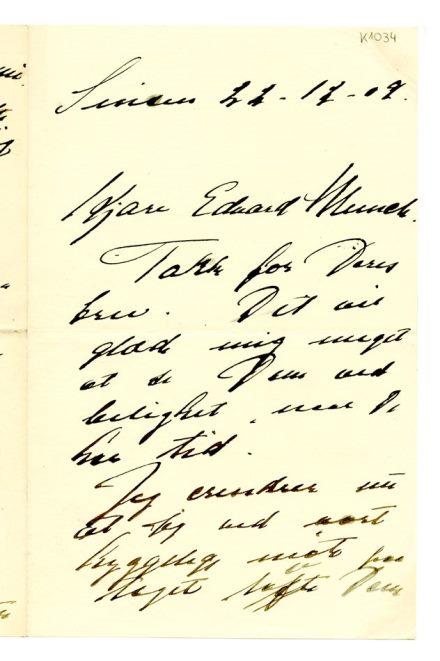 K1034
Sinsen 22-12-09.
Kjære Edvard Munch.
Takk for Deres
brev. Det vil
glæde mig meget
at se Dem ved
leilighet, naar De
har tid.
Jeg erindrer nu
at jeg ved vort
hyggelige møt paa
toget lofte Dem